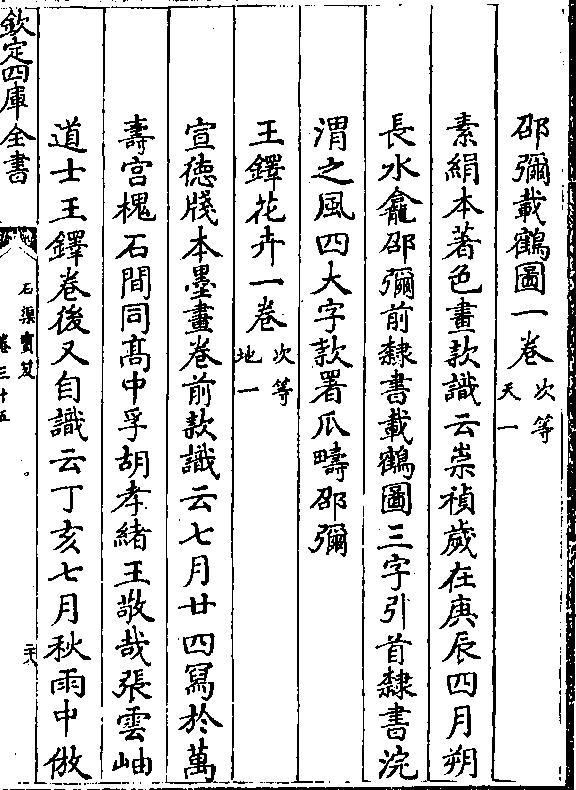 邵彌載鶴圖一卷次等天一
素絹本著色畫款識云崇禎歲在庚辰四月朔
長水龕邵彌前隸書載鶴圖三字引首隸書浣
渭之風四大字款署瓜疇邵彌
王鐸花卉一卷次等地一
宣徳牋本墨畫卷前款識云七月廿四冩於萬
壽宫槐石間同髙中孚胡孝緒王敬哉張雲岫
道士王鐸卷後又自識云丁亥七月秋雨中倣
欽定四庫全書
石渠寳笈
卷三十五